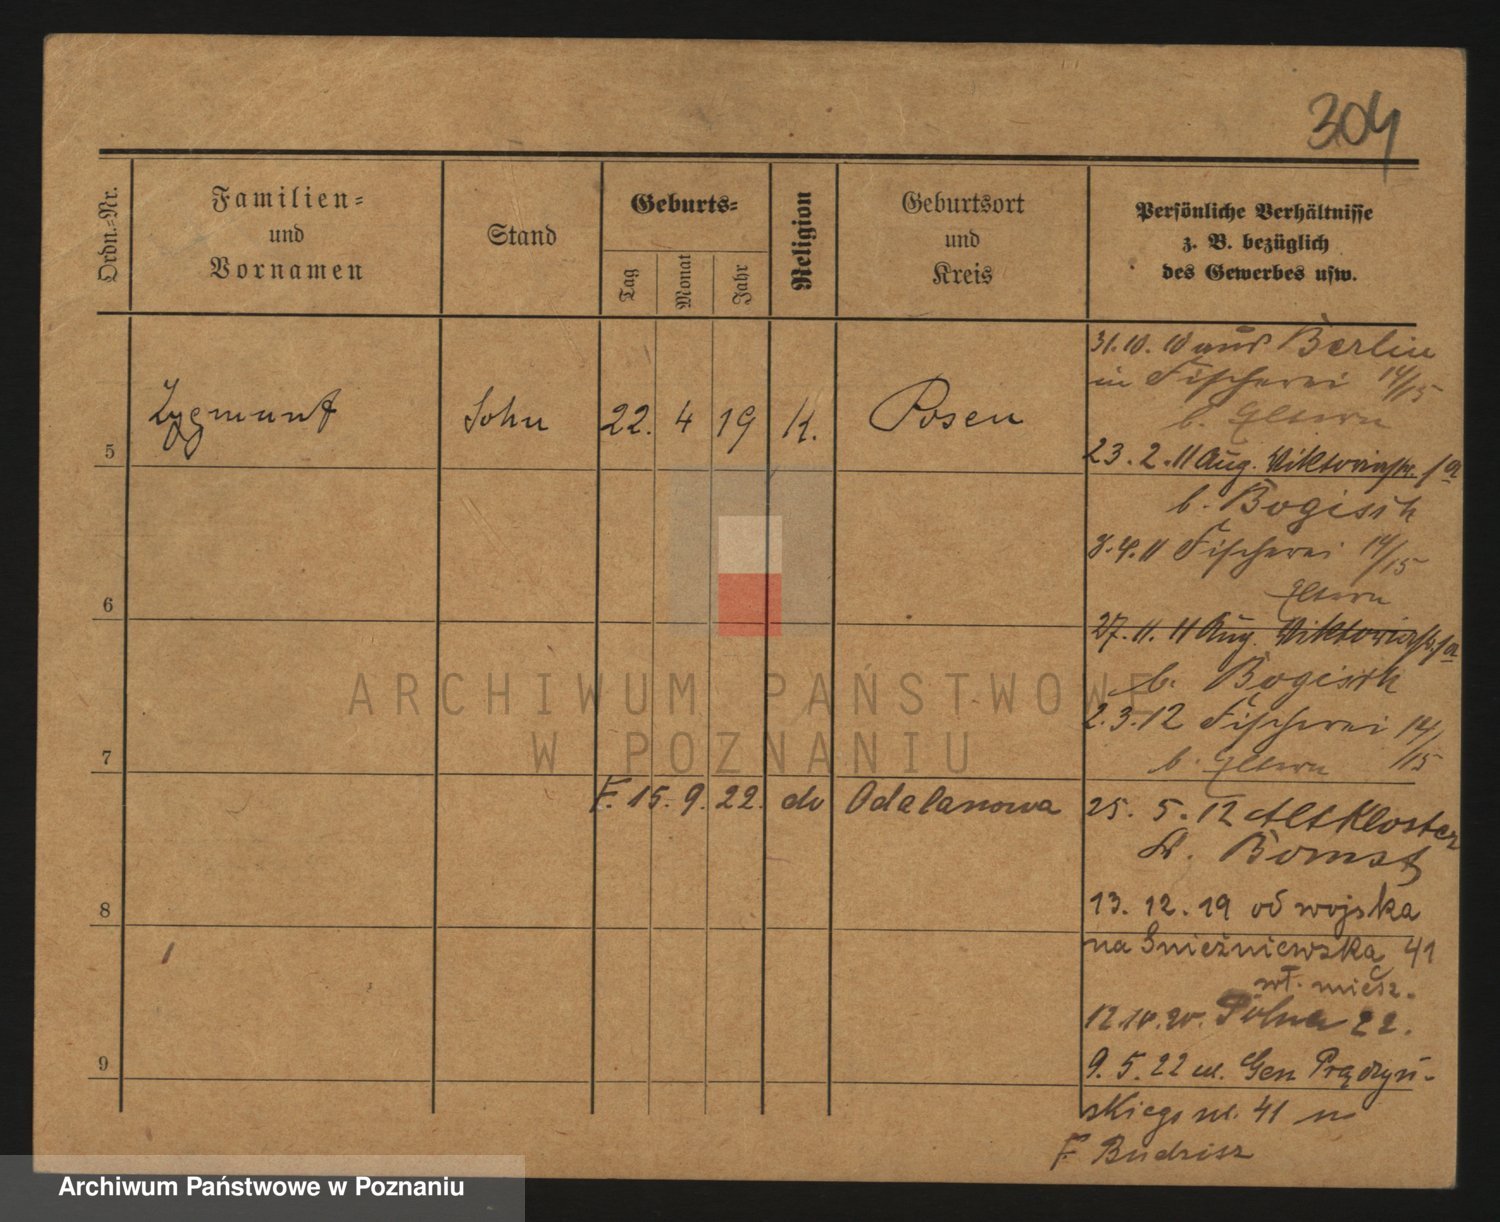 304
Ordn.-Nr.
Familien-
und
Vornamen
Stand
Geburts-
Tag
Monat
Jahr
Religion
Geburtsort
und
Kreis
Persönliche Verhältnisse
z. B. bezüglich
des Gewerbes usw.
5
Zygmunt
Sohn
22. 4 19
K.
Posen
31.10.10 aus Berlin
in Fischerei 14/15
b. Eltern
23.2.11 Aug. Viktoriastr. 1a
b. Bogisch
8.4.11 Fischerei 14/15
Eltern
27.11.11 Aug. Viktoriastr. 1a
b. Bogisch
2.3.12 Fischerei 14/15
b. Eltern
6
7
F. 15. 9. 22. do Odalanowa
25. 5. 12 Altkloster
Kr. Bomst
8
13. 12. 19 od wojska
na Śnieżniewska 41
wł. miesz.
12.10.20. Polna 22.
9
9. 5. 22 ul. Gen Prądzyń-
skiego ul. 41 n
F. Budzisz
ARCHIWUM PAŃSTWOWE
W POZNANIU
Archiwum Państwowe w Poznaniu